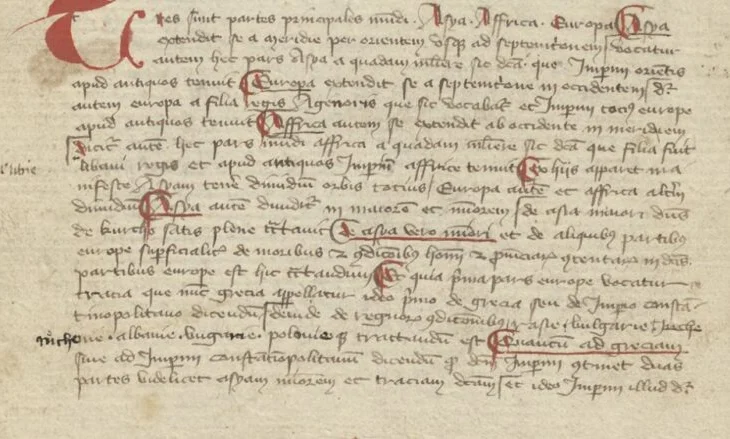 Tres sunt partes principales mundi. Asya. Affrica. Europa Asya
extendit se a meridie per orientem usq; ad septemtrionem vocatur
autem hec pars Asya a quadam muliere sic dca que Imperium orientis
apud antiquos tenuit Europa extendit se a septemtrione in occidentem dr
autem europa a filia regis Agenoris que sic vocabat et Imperium tocius europe
apud antiquos tenuit Affrica autem se extendit ab occidente in meridiem
dicitr autem hec pars mundi affrica a quadam muliere sic dca que filia fuit
libani regis et apud antiquos Imperium affrice tenuit Ex hiis apparet ma
nifeste Asyam tene dimidium orbis tocius Europa autem et affrica alterum
dimidium Asya autem dividitr in maiorem et minorem de asia minori duus
satis plene de asya vero minori et de aliquibus partibus
europe superficialiter de moribus et condicionibus hominum et in
partibus europe est hic tractandum Et quia prima pars europe vocatur
tracia que nunc grecia appellatur ideo primo de grecia seu de Imperio constan
tinopolitano dicendum deinde de regnorum condicionibus rasie bulgarie
ruthenie albanie ungarie polonie tractandum est Quantum ad greciam
sive ad Imperium constantinopolitanum dicendum quod dictum Imperium continet duas
partes videlicet asyam minorem et traciam dictam et ideo Imperium illud dr